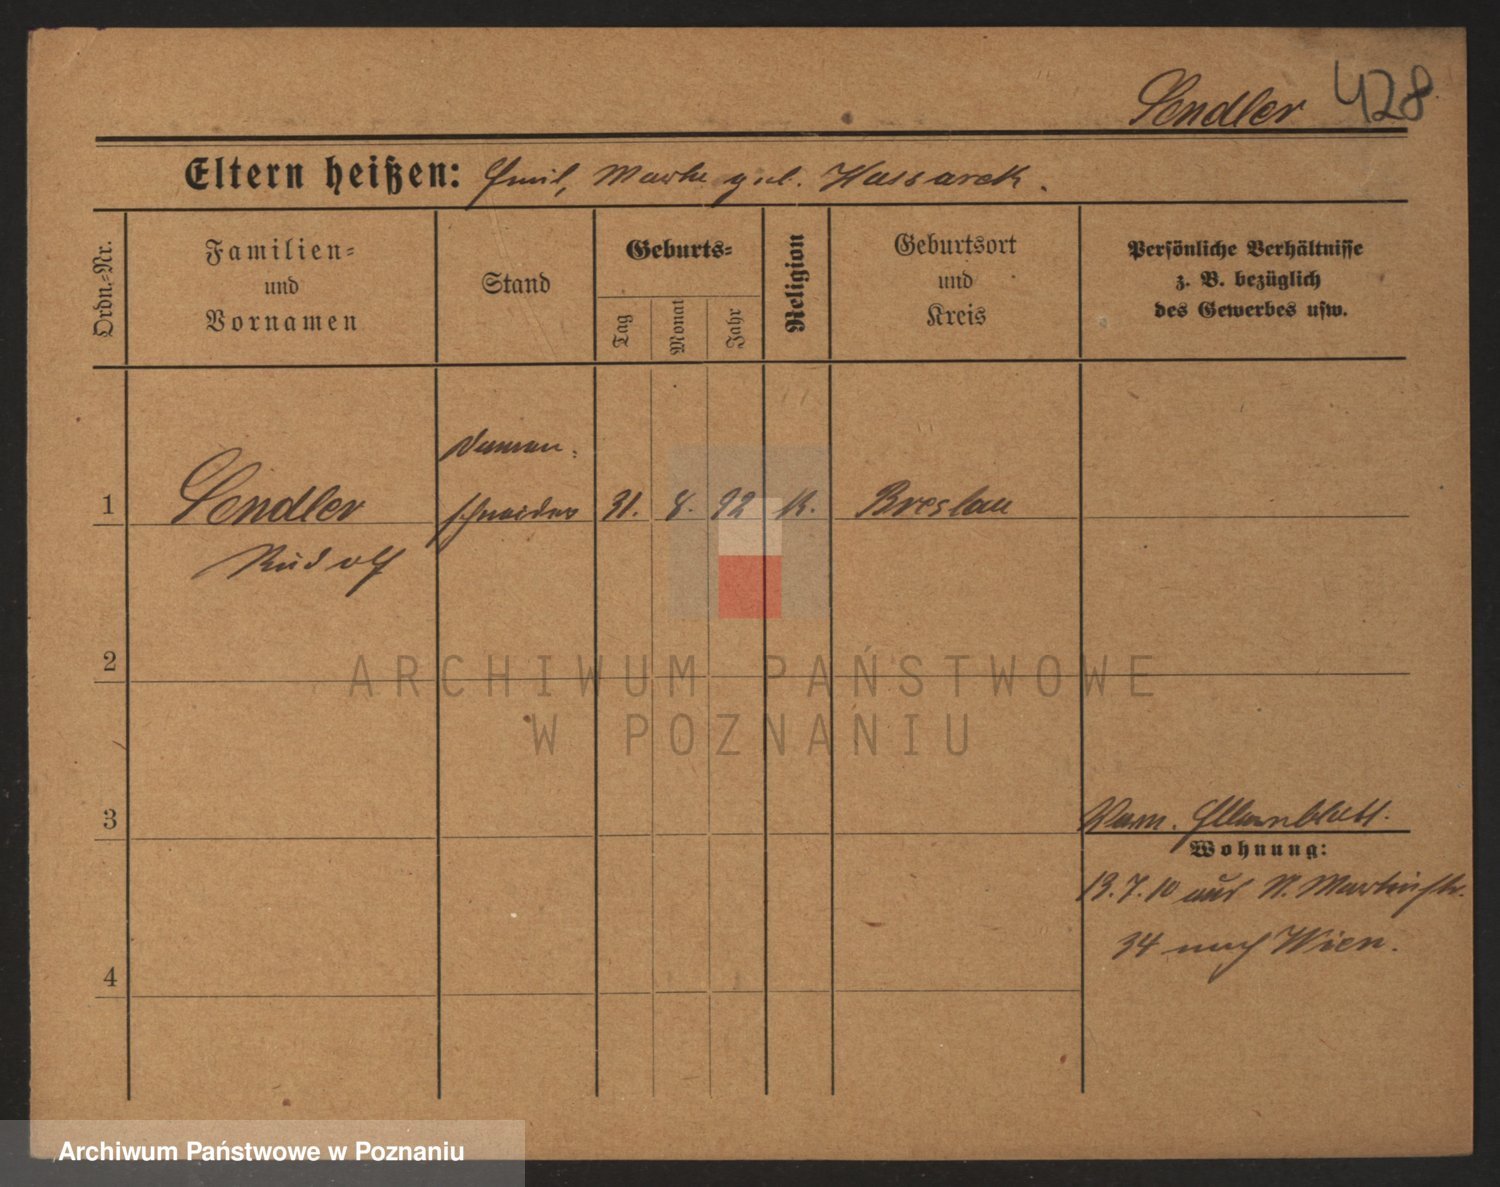 Sendler 428
Eltern heißen: Emil, Marka geb. Kassarek.
Ordn.-Nr.
Familien=
und
Vornamen
Stand
Geburts=
Tag
Monat
Jahr
Religion
Geburtsort
und
Kreis
Persönliche Verhältnisse
z. B. bezüglich
des Gewerbes usw.
Damen=
1 Sendler schneider 31. 8. 92 K. Breslau
Rudolf
2
3
4
Elternblatt.
Wohnung:
13.7.10 auf St. Martinstr.
34 nach Wien.
ARCHIWUM PAŃSTWOWE
W POZNANIU
Archiwum Państwowe w Poznaniu